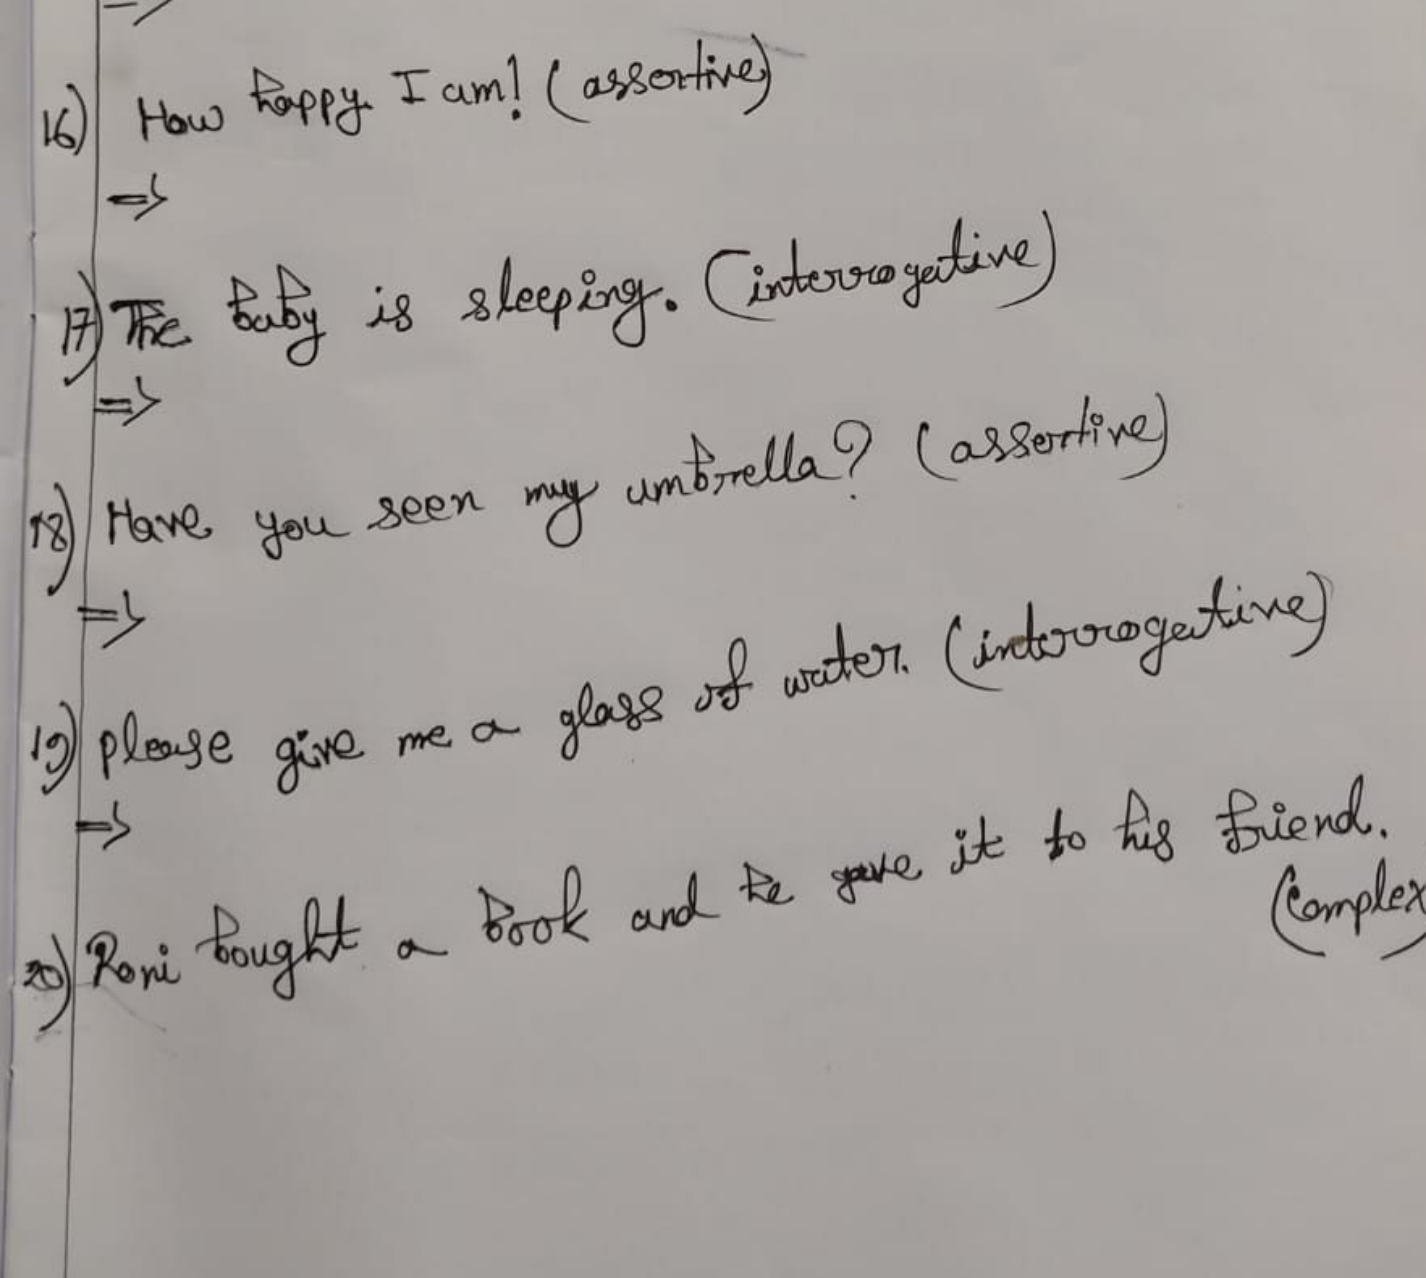 ⇒
16) How happy I am! (assertive)
⇒
17) The baby is sleeping. (interrogative)
⇒
18) Have you seen my umbrella? (assertive)
⇒
19) please give me a glass of water. (interrogative)
⇒
20) Roni bought a book and he gave it to his friend.
(Complex